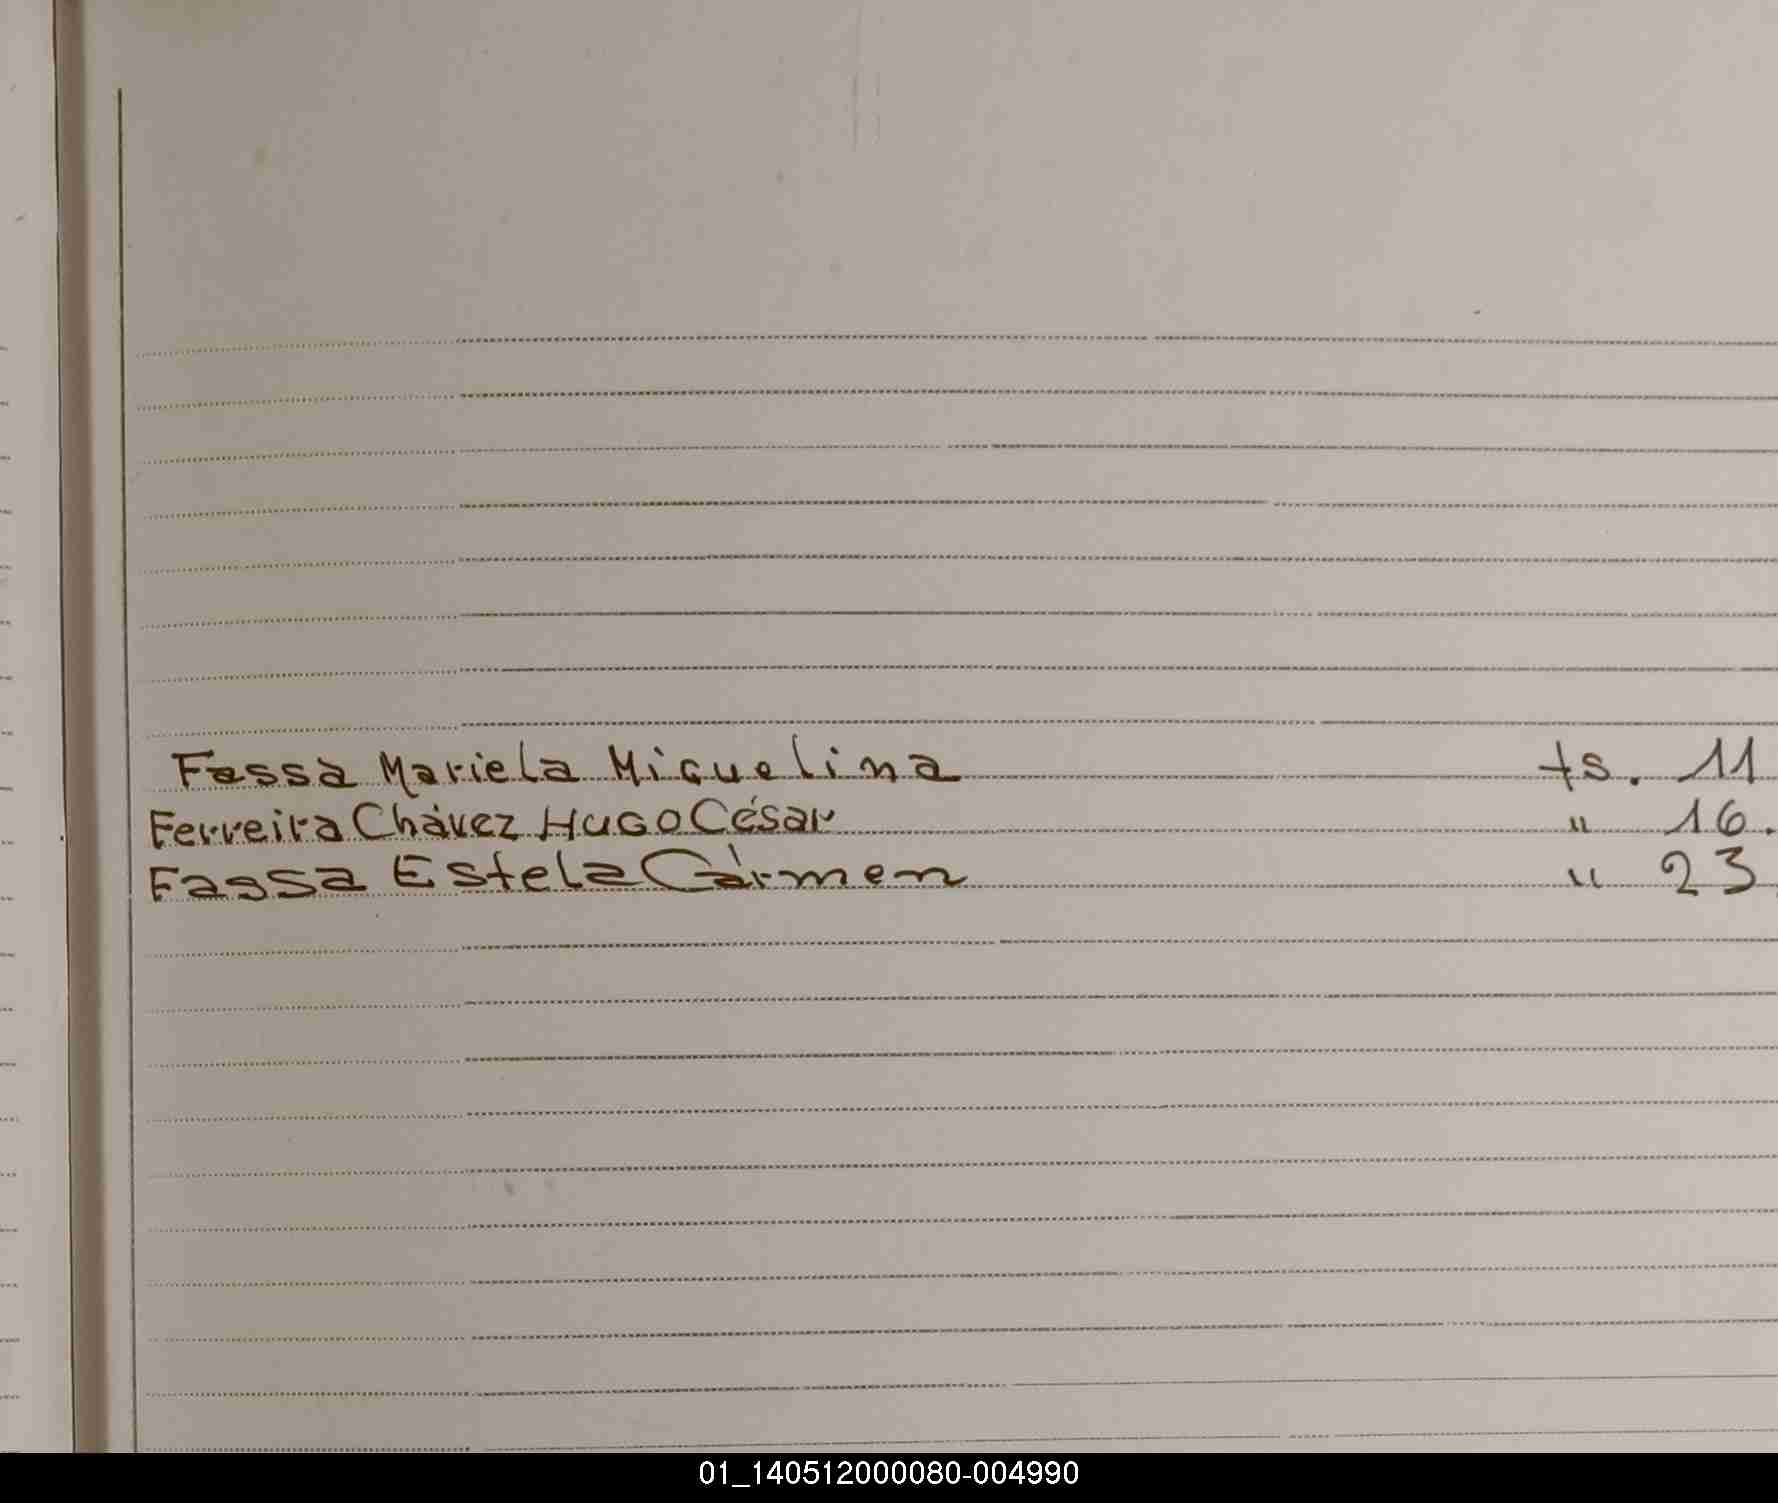 Fassa Mariela Miguelina fs. 11
Ferreira Chávez Hugo César " 16.
Fassa Estela Cármen " 23
01_140512000080-004990